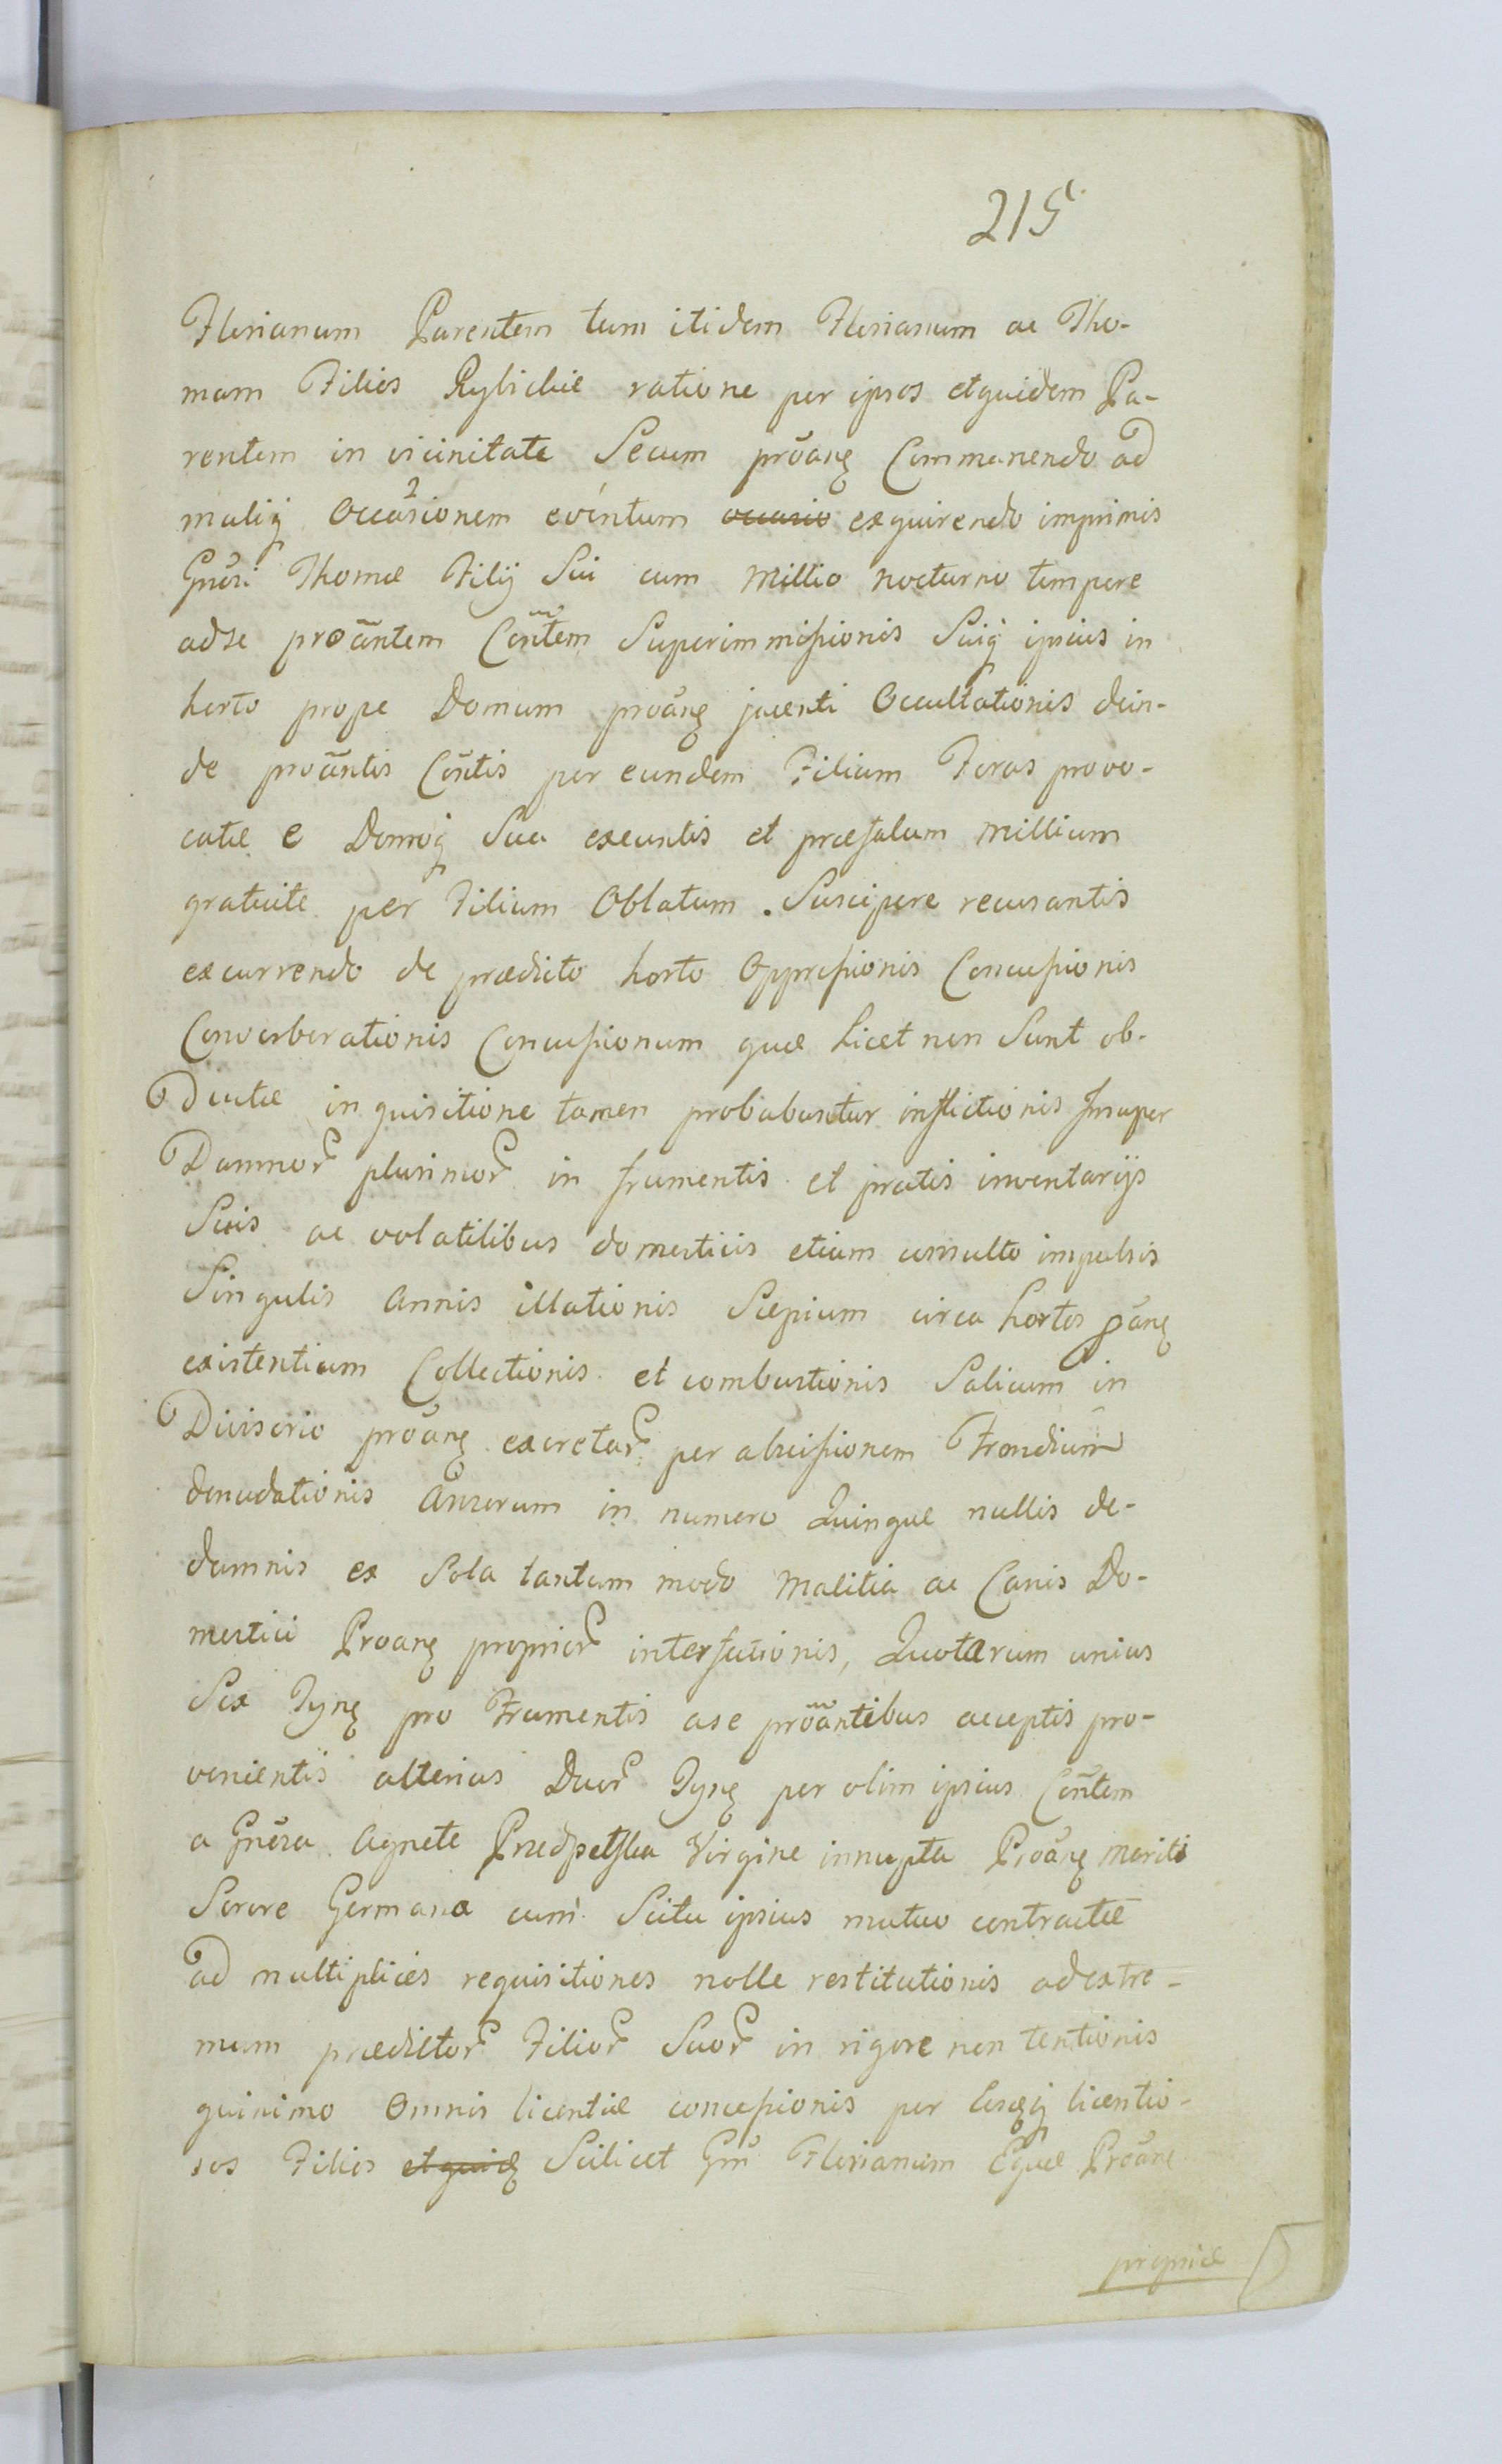 215
Florianum Parentem tum itidem Florianum ac Tho-
mam Filios Rybickie ratione per ipsos etquidem Pa-
rentem in vicinitate Secum prõanꝫ Commanendo ad
maliꝗ Occasionem evintum occasio exquirendo imprimis
Gnõsi Thomæ Filij Sui cum Millio nocturno tempore
adse proãntem Cõntem Superimmissionis Suiꝗ ipsius in
horto prope Domum proãnꝫ jacenti Occultationis dein-
de proãntis Cõntis per eundem Filium Foras provo-
catæ e Domoꝗ Sua exeuntis et præfatum Millium
gratuite per Filium Oblatum. Suscipere recusantis
excurrendo de prædicto horto Oppressionis Concussionis
Converberationis Concussionum quæ licet non Sunt ob-
Ductæ inquisitione tamen probabuntur inflictionis Insuper
Damnor plurimor in frumentis et pratis inventarijs
Suis ac volatilibus domesticis etiam consulto impulsis
Singulis Annis illationis Sæpium circa hortos pãnꝫ
existentium Collectionis et combustionis Salicum in
Divisorio prõanꝫ excretar per abscissionem Frondium
denudationis Anserum in numero Quinque nullis de-
damnis ex Sola tantum modo Malitia ac Canis Do-
mestici Proanꝫ proprior interfectionis, Quotarum unius
Sex Tynꝫ pro Frumentis ase prõãntibus acceptis pro-
venientis alterius Duor Tynꝫ per olim ipsius Cõntem
a Gnõsa Agnete Przedpelska Virgine innupta Proãnꝫ mariti
Sorore Germana cum Scitu ipsius mutuo contractæ
ad multiplices requisitiones nolle restitutionis adextre-
mum prædictor Filior Suor in rigore non tentionis
quinimo Omnis licentiæ concessionis per Eosꝗ licentio-
sos Filios etquidꝫ Scilicet Gm Florianum Equæ Proãnæ
propriæ